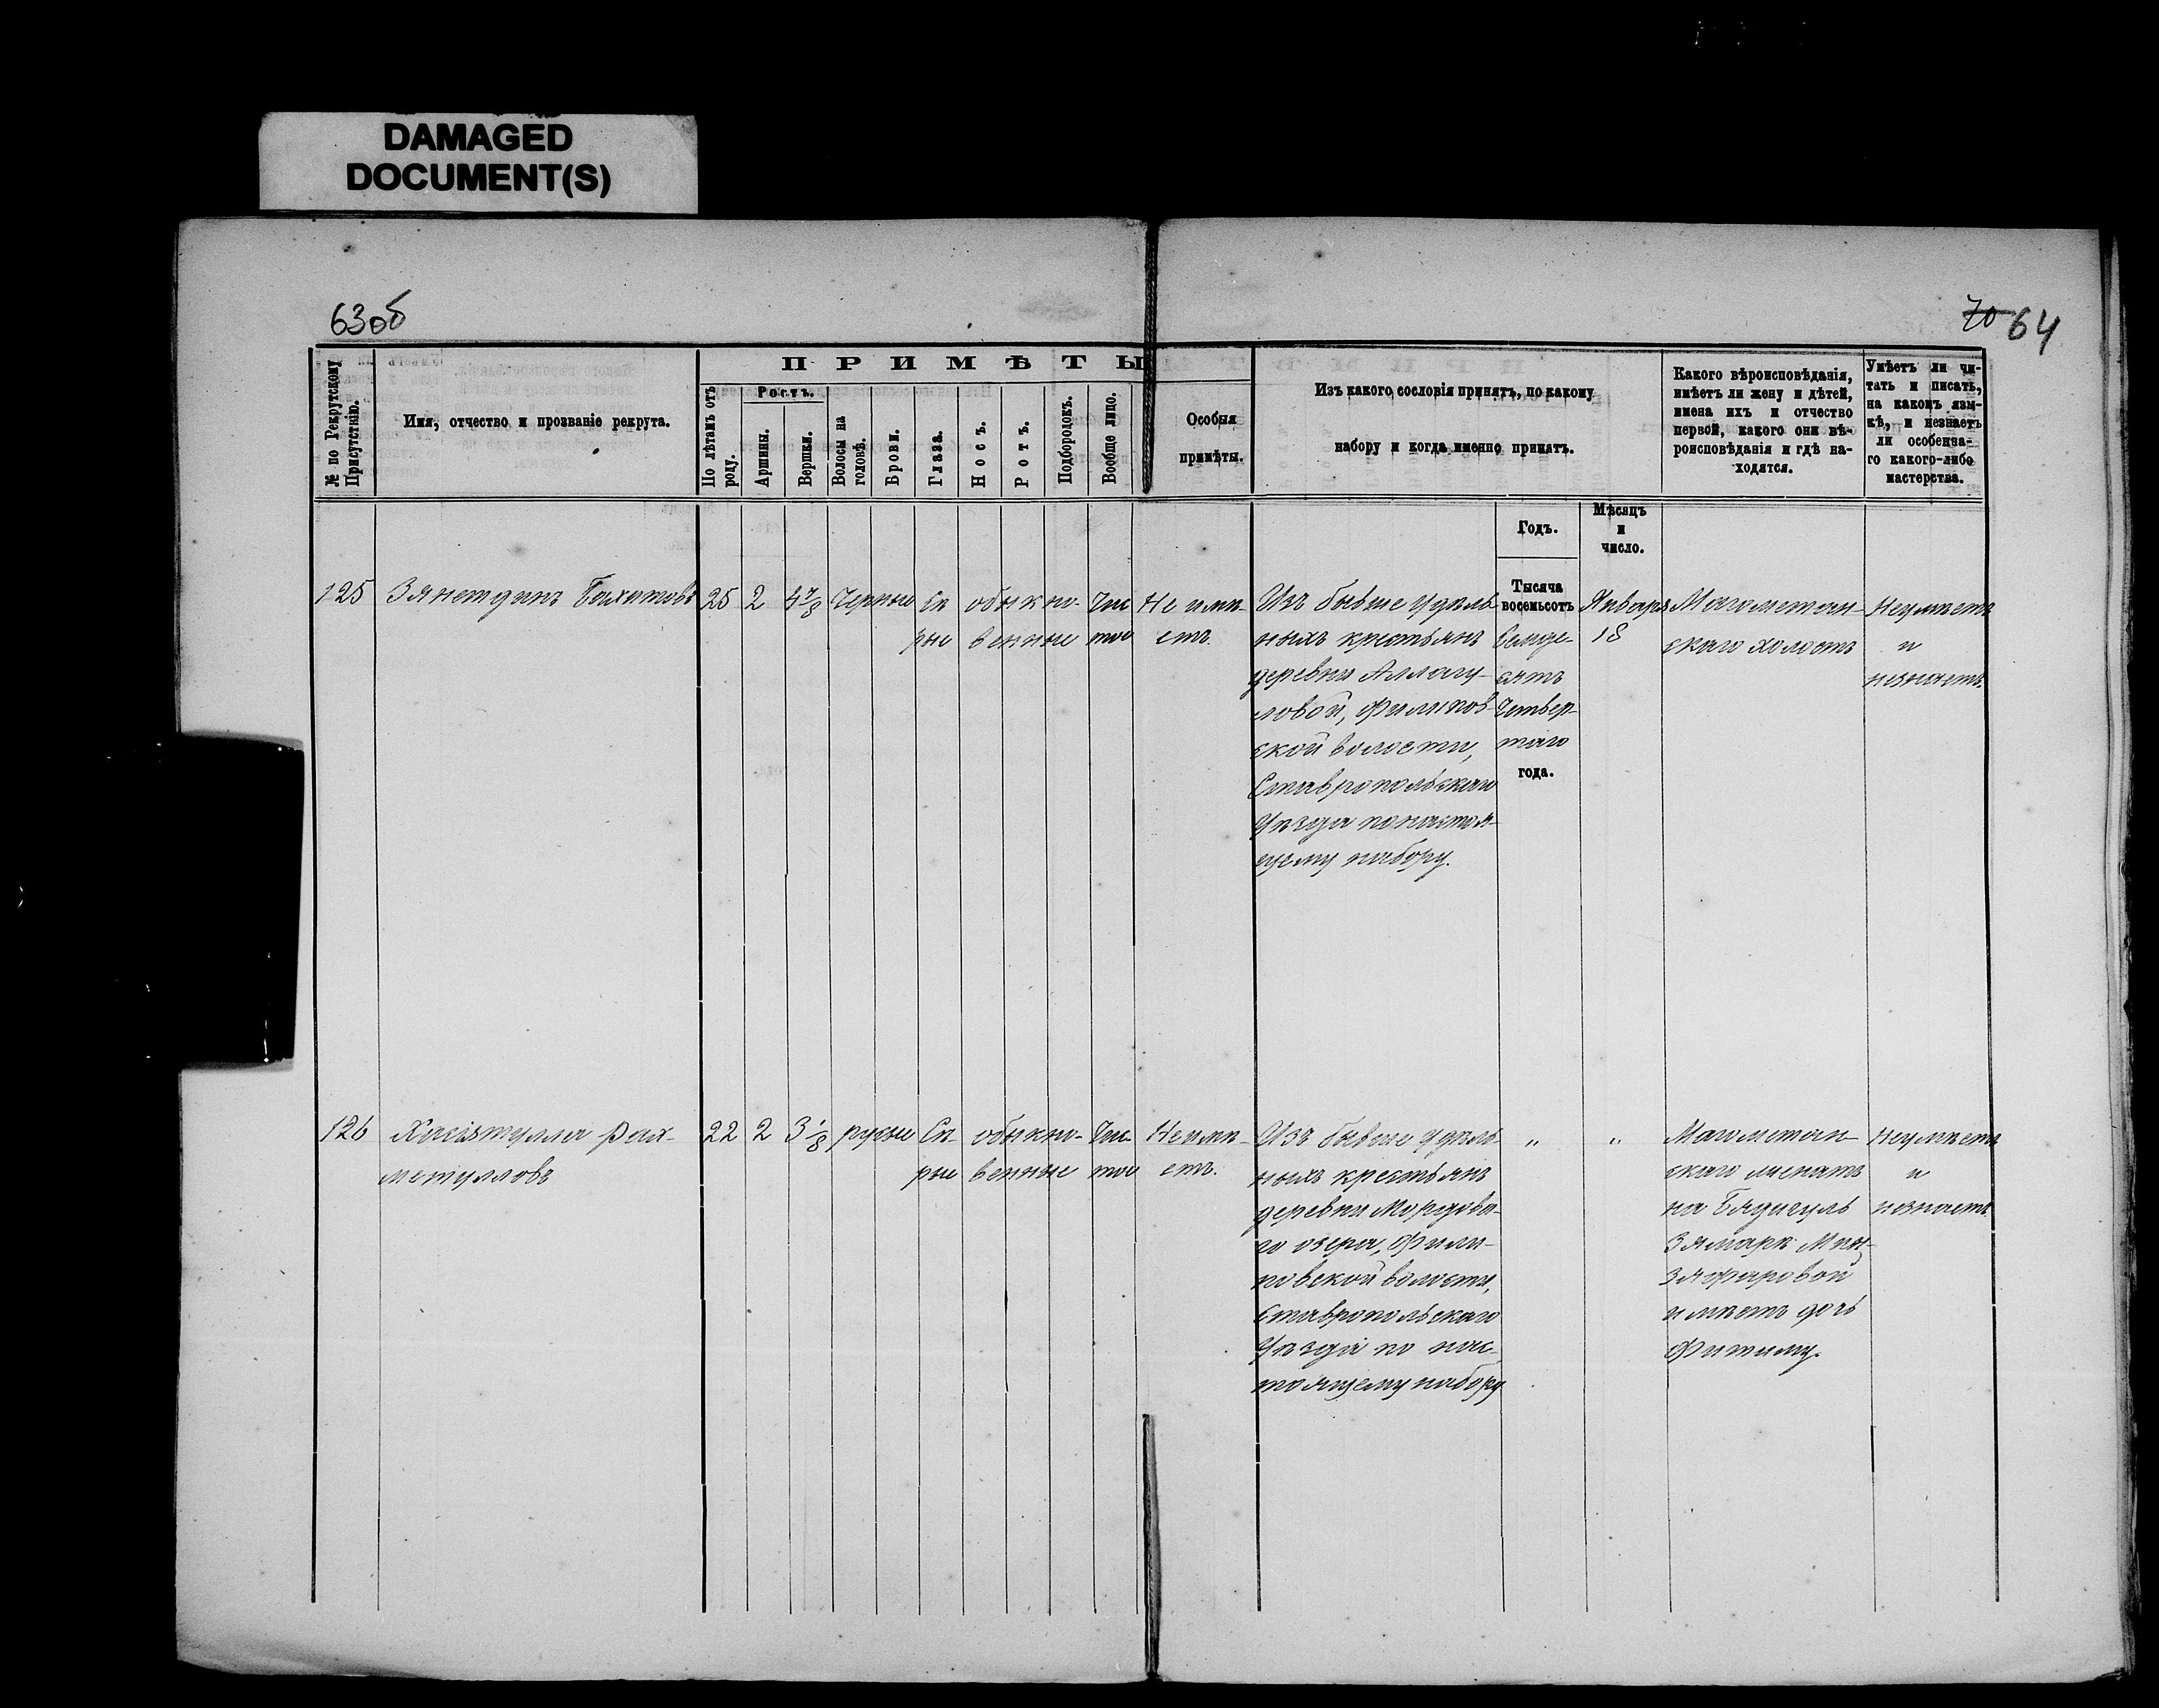 DAMAGED
DOCUMENT(S)
63об
70 64
№ по Рекрутскому
Присутствію.
Имя, отчество и прозваніе рекрута.
ПРИМѢТЫ
По лѣтамъ отъ
роду.
Ростъ.
Аршины.
Вершки.
Волосы на
головѣ.
Брови.
Глаза.
Носъ.
Ротъ.
Подбородокъ.
Вообще лицо.
Особыя
примѣты.
Изъ какого сословія принятъ, по какому
набору и когда именно принятъ.
Какого вѣроисповѣданія,
имѣетъ ли жену и дѣтей,
имена ихъ и отчество
первой, какого они вѣ-
роисповѣданія и гдѣ на-
ходятся.
Умѣетъ ли чи-
тать и писать,
на какомъ язы-
кѣ, и незнаетъ
ли особенна-
го какого-либо
мастерства.
Годъ.
Мѣсяцъ
и
число.
125
Зянетдинъ
25
2
4 7/8
Черные
Сѣ
рые
обыкно-
венные
Чис
тое
Не имѣ-
етъ.
Изъ бывше удѣль
ныхъ крестьянъ
деревни Аллагу-
ловой, Филипов-
ской волости,
Ставропольскаго
Уѣзда по настоя-
щему набору.
Тысяча
восемьсотъ
Семде-
сятъ
Четвер-
таго
года.
Января
18
Магометан-
скаго холостъ
Неумѣетъ
и
незнаетъ.
126
Рах-
метулловъ
22
2
3 1/8
русые
Сѣ-
рые
обыкно-
венные
Чис-
тое
Неимѣ-
етъ.
Изъ бывше удѣль-
ныхъ крестьянъ
деревни Мордова-
го озера, Фили-
повской волости,
Ставропольскаго
Уѣзда по нас-
тоящему набору
"
"
Магометан-
скаго женатъ
на Бядигуль
имѣетъ дочь
Фатиму.
неумѣетъ
и
незнаетъ.